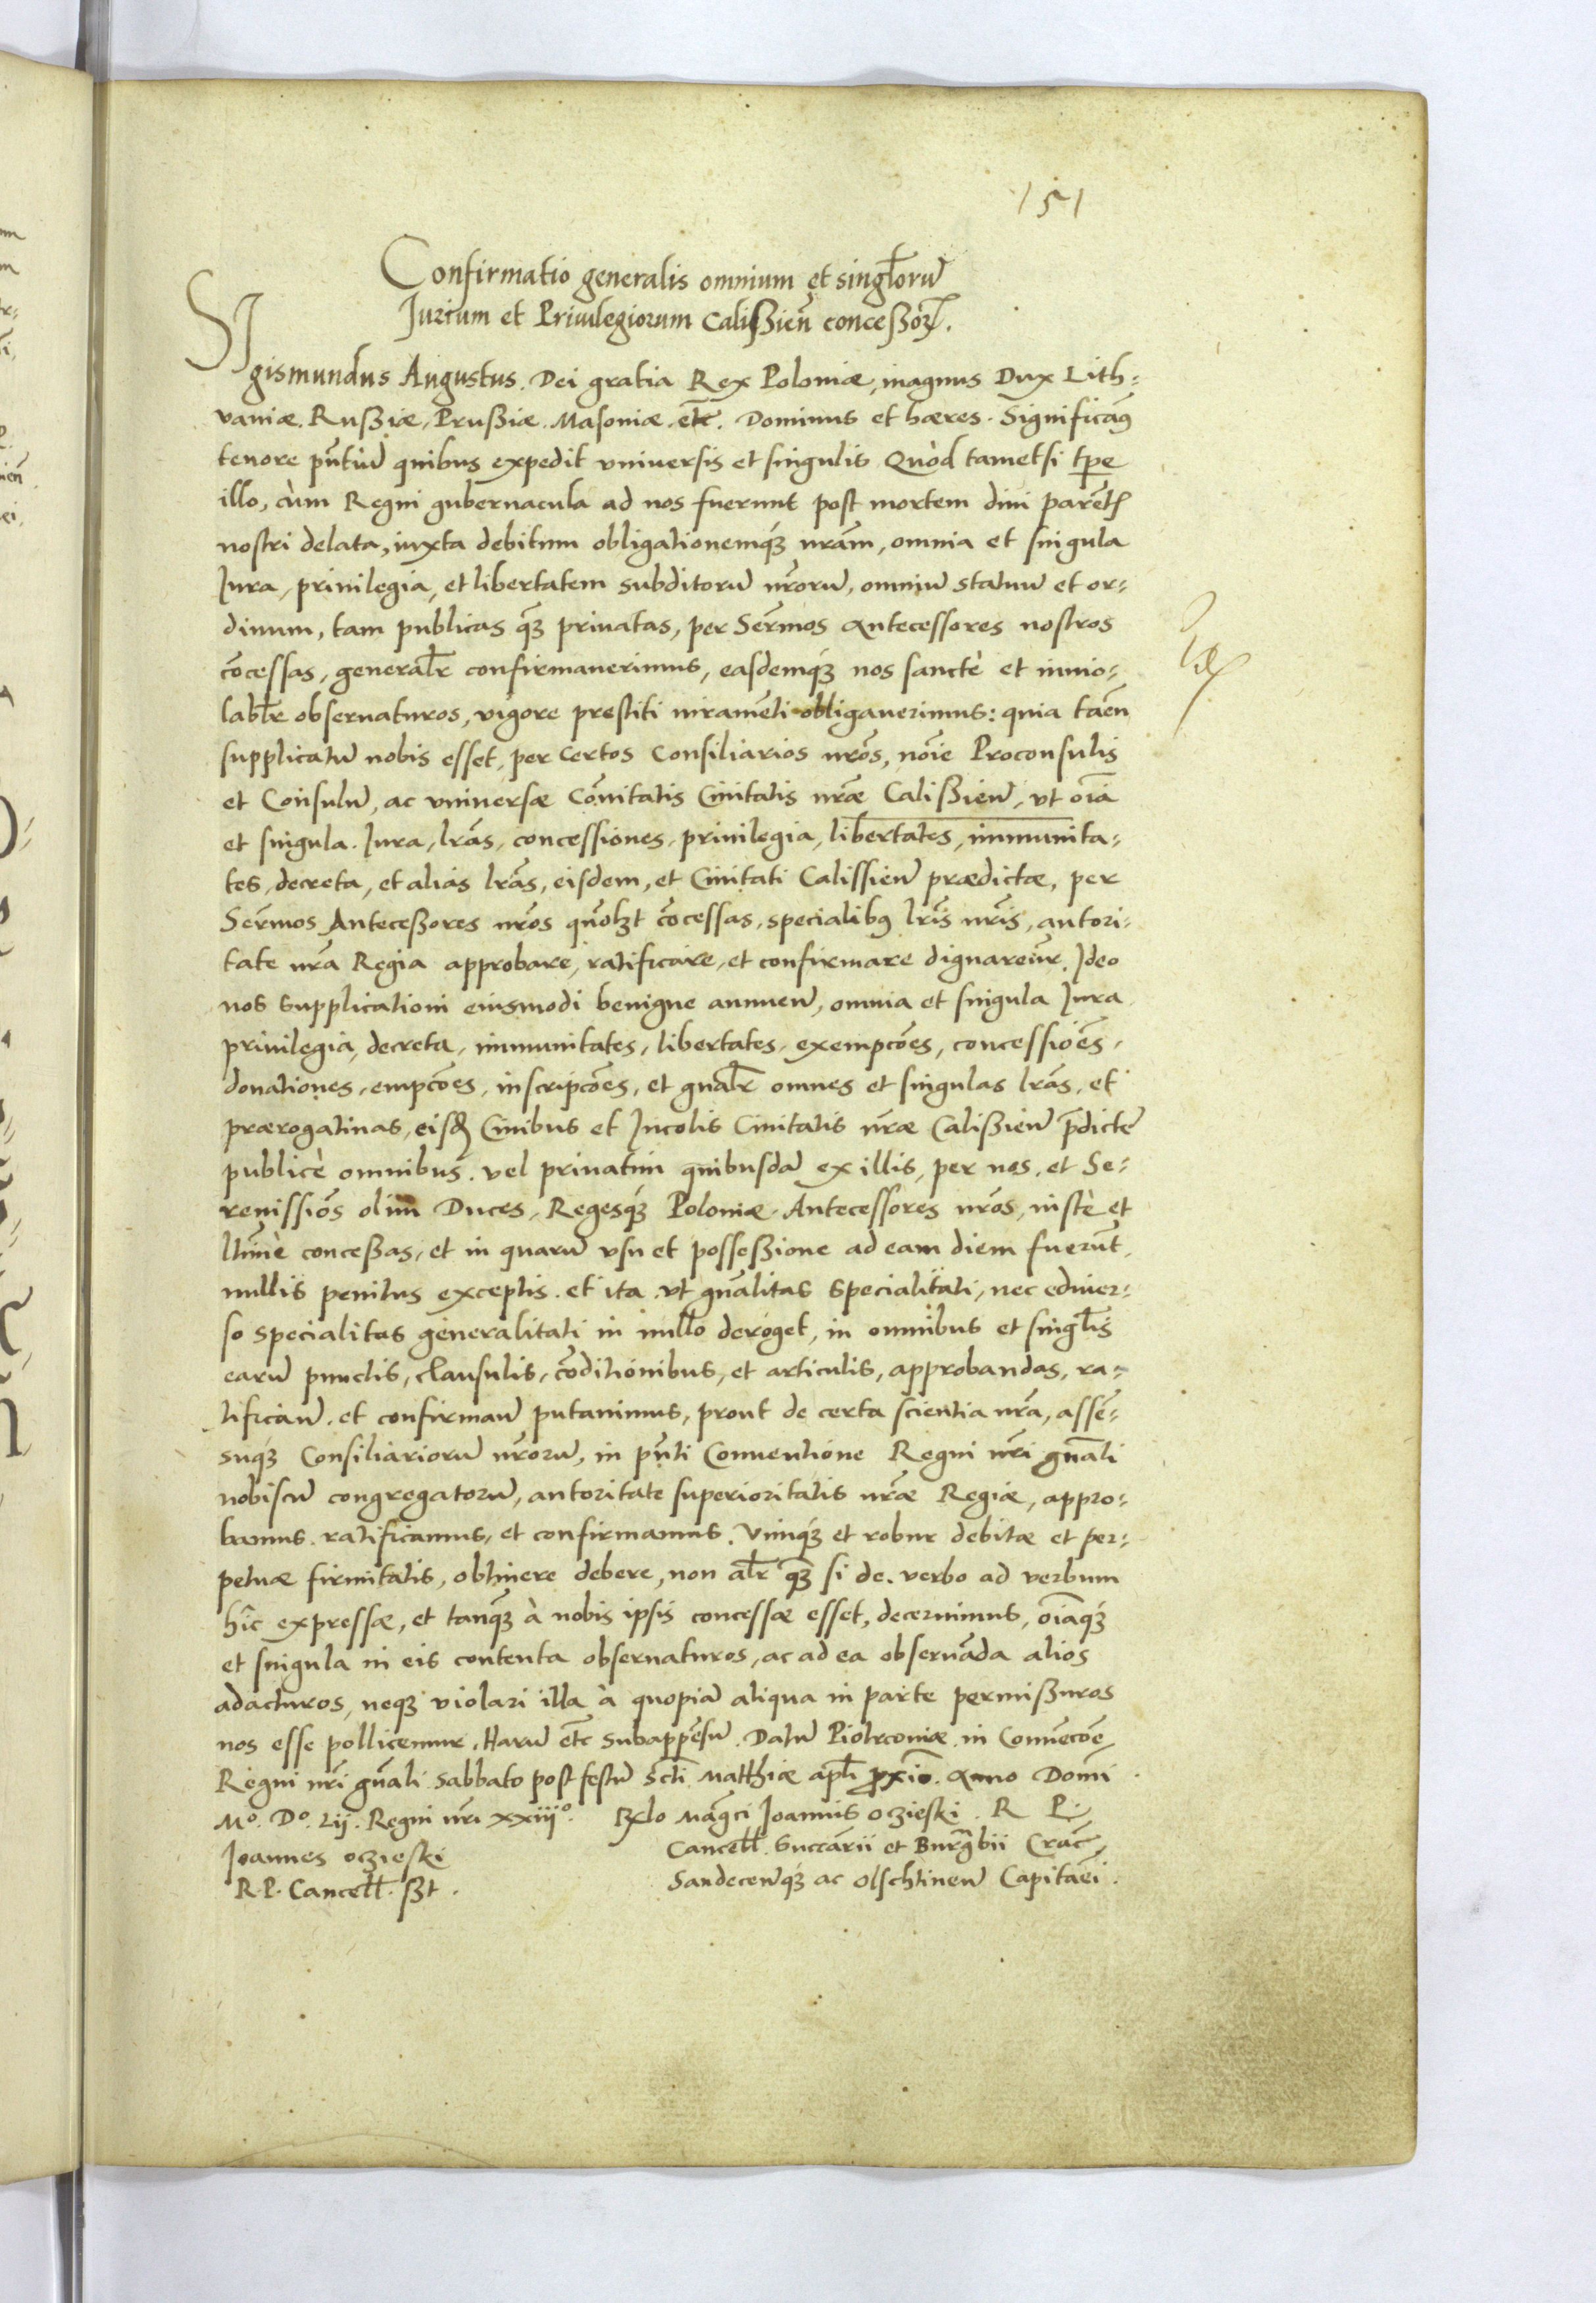 151
Confirmatio generalis omnium et singl̃orũ
Jurium et Priuilegiorum Calißieñ conceßoꝝ.
SIgismundus Augustus. Dei gratia Rex Poloniæ, magnus Dux Lith-
vaniæ. Rußiæ, Prußiæ. Masoniæ. etc̃. Dominus et hæres. Significam9
tenore pñtiũ quibus expedit vniuersis et singulis Quòd tametsi tp̃e
illo, cùm Regni gubernacula ad nos fuerunt post mortem diui parẽtꝭ
nostri delata, iuxta debitum obligationemqꝫ nrãm, omnia et singula
Jura, priuilegia, et libertatem subditorũ nr̃orũ, omniũ statuũ et or-
dinum, tam publicas qꝫ̃ priuatas, per Sermõs Antecessores nostros
cõcessas, generalr̃ confirmauerimus, easdemqꝫ nos sanctè et inuio-
lablr̃ obseruaturos, vigore prestiti iuramẽti obligauerimus: quia tam̃en
supplicatũ nobis esset, per certos Consiliarios nrõs, noĩe Proconsulis
et Consulũ, ac vniuersæ Com̃itatis Ciuitatis nræ̃ Calißieñ, vt oĩa
et singula. Jura, lrãs, concessiones, priuilegia, libertates, immunita-
tes, decreta, et alias lrãs, eisdem, et Ciuitati Calissieñ prædictæ, per
Sermõs Anteceßores nrõs quõlꝫt cõcessas, specialibꝰ lrĩs nrĩs, autori-
tate nrã Regia approbare, ratificare, et confirmare dignaremũr. Ideo
nos supplicationi eiusmodi benigne annueñ, omnia et singula Jura
priuilegia, decreta, immunitates, libertates, exempcões, concessiões,
donationes, empcões, inscripcões, et gñalr̃ omnes et singulas lrãs, et
prærogatiuas, eisđ Ciuibus et Incolis Ciuitatis nr̃æ Calißieñ p̃dicte
publicè omnibus. vel priuatim quibusdã ex illis, per nos, et Se-
renissiõs olim Duces, Regesqꝫ Poloniæ. Antecessores nrõs, iustè et
ltim̃è conceßas, et in quarũ vsu et possessione ad eam diem fuerũt,
nullis penitus exceptis. et ita vt gñalitas specialitati, nec ediuer-
so specialitas generalitati in nullo deroget, in omnibus et singl̃is
earũ punctis, clausulis, cõditionibus, et articulis, approbandas, ra-
tificañ. et confirmañ putauimus, prout de certa scientia nrã, assẽ-
suqꝫ Consiliariorũ nr̃orũ, in pñti Conuentione Regni nrĩ gñali
nobiscũ congregatorũ, autoritate superioritatis nræ̃ Regiæ, appro-
bamus. ratificamus, et confirmamus. Vimqꝫ et robur debitæ et per-
petuæ firmitatis, obtinere debere, non alr̃ qꝫ̃ si de. verbo ad verbum
hîc expressæ, et tanqꝫ̃ à nobis ipsis concessæ esset, decernimus, oĩaqꝫ
et singula in eis contenta obseruaturos, ac ad ea obseruãda alios
adacturos, neqꝫ violari illa à quopiã aliqua in parte permißuros
nos esse pollicemur. Harũ etc̃ subappẽsũ. Datũ Piotrcouiæ. in Conuẽcõe
Regni nrĩ gñali Sabbato post festũ Scti Matthiæ apl̃i p̱xiõ. Anno Domĩ
Mº. Dº. Lij. Regni nrĩ xxiijº. Rlo Mag̃ci Joannis oczieski. R P.
Joannes oczieski
R. P. Cancell̃. ßt.
Cancell̃. Succãrii et Burg̃bii Crac̃,
Sandeceñqꝫ ac Olschtineñ Capitãei.